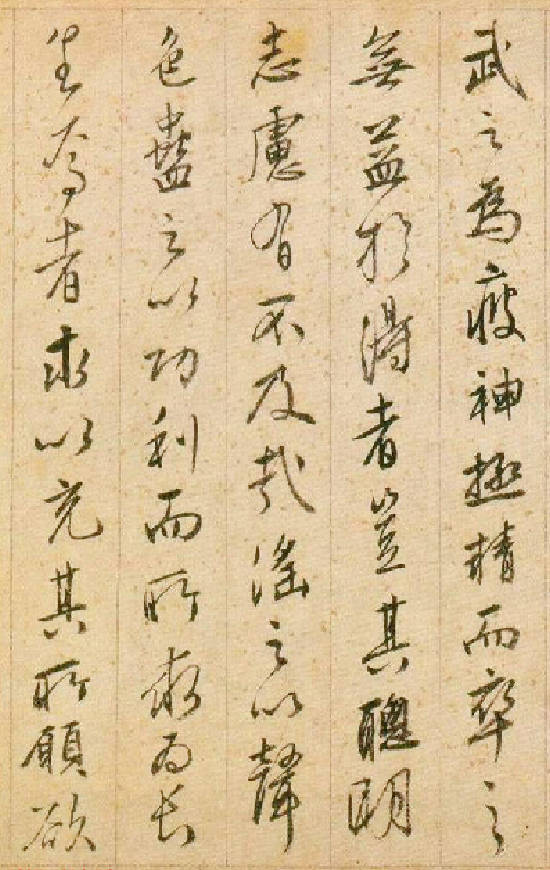 武之為疲神極精而卒之
無益於得者豈其聰明
志慮有不及哉滛之以聲
色蠱之以功利而所為長
生者求以充其所願欲